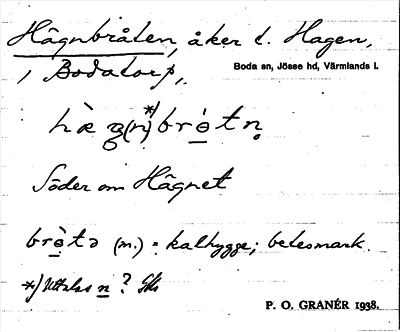 Hågnbråten, åker t. Hagen,
i Bodatorp,
Boda sn, Jösse hd, Värmlands l.
hæ̀g(n)*)brɵ̀tn̥
Söder om Hågnet
brɵ̀tə (m.) = kalhygge; betesmark.
*) Uttalas n?
P. O. GRANÉR 1938.